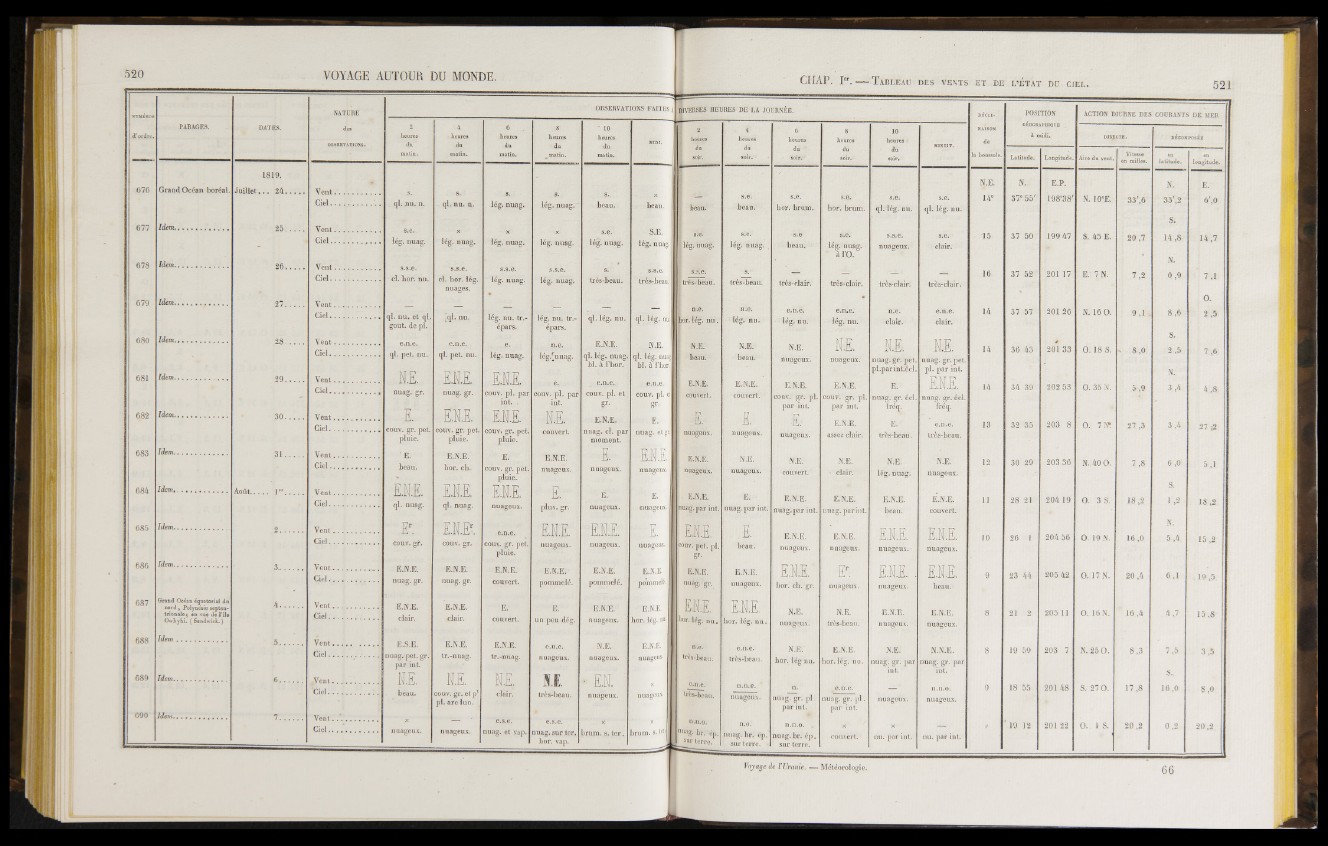 520
VOYAGE AUTOUR DU MONDE.
NUMÉROS
d'ordre.
PARAGES.
DATES.
NATURE
des
OBSERVATIONS.
OBSERVATIONS FAITES
2 heures du matin.
4 heures du matin.
6 heures du matin.
8 heures du matin.
10 heures du matin.
MIDI.
1819.
676 Grand Océan boréal. Juillet... 24..... Vent s. s. s. s. s.
Ciel ql. nu. n. ql. nu. n. lég. nuag. lég. nuag. beau. beau.
677 Idem 25..... Vent s.e. × × × s.e. S.E.
Ciel lég. nuag. lég. nuag. lég. nuag. lég. nuag. lég. nuag. lég. nuag.
678 Idem 26..... Vent s.s.e. s.s.e. s.s.e. s.s.e. s. s.s.e.
Ciel cl. hor. nu. cl. hor. lég. nuages. lég. nuag. lég. nuag. très-beau. très-beau.
679 Idem 27..... Vent — — — — — —
Ciel ql. nu. et ql. gout. de pl. ql. nu. lég. nu. tr.-épars. lég. nu. tr.-épars. ql. lég. nu. ql. lég. nu.
680 Idem 28..... Vent e.n.e. e.n.e. e. n.e. E.N.E. N.E.
Ciel ql. pet. nu. ql. pet. nu. lég. nuag. lég. nuag. ql. lég. nuag. bl. à l'hor. ql. lég. nuag. bl. à l'hor
681 Idem 29..... Vent N.E. E.N.E. E.N.E. e. e.n.e. e.n.e.
Ciel nuag. gr. nuag. gr. couv. pl. par int. couv. pl. par int. couv. pl. et gr. couv. pl. et gr.
682 Idem 30..... Vent E. E.N.E. E.N.E. N.E. E.N.E. E.
Ciel couv. gr. pet. pluie. couv. gr. pet. pluie. couv. gr. pet. pluie. couvert. nuag. cl. par moment. nuag. et
683 Idem 31..... Vent E. E.N.E. E. E.N.E. E. E.N.E.
Ciel beau. bac. ch. couv. gr. pet. pluie. nuageux. nuageux. nuageux.
684 Idem Août..... 1er..... Vent E.N.E. E.N.E. E.N.E. E. E. E.
Ciel ql. nuag. ql. nuag. nuageux. pluv. gr. nuageux. nuageux.
685 Idem 2..... Vent Er E.N.Er. e.n.e. E.N.E. E.N.E. E.
Ciel couv. gr. couv. gr. couv. gr. pet. pluie. nuageux. nuageux. nuageux.
686 Idem 3..... Vent E.N.E. E.N.E. E.N.E. E.N.E. E.N.E. E.N.E.
Ciel nuag. gr. nuag. gr. couvert. pommelé. pommelé. pommelé
687 Grand Océan équatorial du nord, Polynésie septentrionale; en vue de l'île Owhyhi. (Sandwich.) 4..... Vent E.N.E. E.N.E. E. E. E.N.E. E.N.E.
Ciel clair. clair. couvert. un peu dég. nuageux. hor. lég. nu.
688 Idem 5..... Vent E.S.E. E.N.E. E.N.E. e.n.e. N.E. E.N.E.
Ciel nuag. pet. gr. par int. tr.-nuag. tr.-nuag. nuageux. nuageux. nuageux
689 Idem 6..... Vent N.E. N.E. N.E. N.E. E.N.
Ciel beau. couv. gr. et p' pl. arc lun. clair. très-beau. nuageux. nuageux
690 Idem 7..... Vent × — e.s.e. e.s.e. × ×
Ciel nuageux. nuageux. nuag. et vap. nuag. sur ter. hor. vap. brum. s. ter. brum. s. ter
CHAP. Ier. — TABLEAU DES VENTS ET DE L'ÉTAT DU CIEL.
521
DIVERSES HEURES DE LA JOURNÉE.
2 heures du soir.
4 heures du soir.
6 heures du soir.
8 heures du soir.
10 heures du soir.
MINUIT.
DÉCLINAISON de la boussole.
POSITION GÉOGRAPHIQUE à midi.
Latitude. Longitude.
ACTION DIURNE DES COURANTS DE MER
DIRECTE. DÉCOMPOSÉE
Aire du vent. Vitesse en milles. en latitude. en longitude.
N.E. N. E.P. N. E.
— s.e. s.e. s.e. s.e. s.e. 14° 37°55' 198°38' N. 10°E. 33',6 33',2 6',0
beau. beau. hor. brum. hor. brum. ql. lég. nu. ql. lég. nu.
S.
s.e. s.e. s.e s.e. s.s.e. s.e. 15 37 50 199 47 S. 45 E. 20 ,7 14 ,8 14 ,7
lég. nuag. lég. nuag. beau. lég. nuag. à l'O. nuageux. clair.
N.
s.s.e. s. — — — — 16 37 52 201 17 E. 7 N. 7 ,2 0 ,9 7 ,1
très-beau. très-beau. très-clair. très-clair. très-clair. très-clair.
O.
n.e. n.e. e.n.e. e.n.e. n.e. e.n.e. 14 37 57 201 26 N. 16 O. 9 ,1 8 ,6 2 ,5
hor. lég. nu. lég. nu. lég. nu. lég. nu. clair. clair.
S.
N.E. N.E. N.E. N.E. N.E. N.E. 14 36 43 201 33 O. 18 S. 8 ,0 2 ,5 7 ,6
beau. beau. nuageux. nuageux. nuag. gr. pet. pl. par int. écl. nuag. gr. pet. pl. par int.
N.
E.N.E. E.N.E. E.N.E. E.N.E. E. E.N.E. 14 34 39 202 53 O. 35 N. 5 ,9 3 ,4 4 ,8
couvert. couvert. couv. gr. pl. par int. couv. gr. pl. par int. nuag. gr. écl. fréq. nuag. gr. écl. fréq.
E. E. E. E.N.E. E. e.n.e. 13 32 35 203 8 O. 7 N. 27 ,5 3 ,4 27 ,2
nuageux. nuageux. nuageux. assez clair. très-beau. très-beau.
E.N.E. N.E. N.E. N.E. N.E. N.E. 12 30 29 203 56 N. 40 O. 7 ,8 6 ,0 5 ,1
nuageux. nuageux. couvert. clair. lég. nuag. nuageux.
S.
E.N.E. E. E.N.E. E.N.E. E.N.E. E.N.E. 11 28 21 204 19 O. 3 S. 18 ,2 1 ,2 18 ,2
nuag. par int. nuag. par int. nuag. par int. nuag. par int. beau. couvert.
N.
E.N.E. E. E.N.E. E.N.E. E.N.E. E.N.E. 10 26 1 204 56 O. 19 N. 16 ,0 5 ,4 15 ,2
couv. pet. pl. gr. beau. nuageux. nuageux. nuageux. nuageux.
E.N.E. E.N.E. E.N.E. Er E.N.E. E.N.E. 9 23 44 205 42 O. 17 N. 20 ,4 6 ,1 19 ,5
nuag. gr. nuageux. hor. ch. gr. nuageux. nuageux. beau.
E.N.E. E.N.E. N.E. N.E. E.N.E. E.N.E. 8 21 2 205 11 O. 16 N. 16 ,4 4 ,7 15 ,8
hor. lég. nu. hor. lég. nu. nuageux. très-beau. nuageux. nuageux.
n.e. e.n.e. N.E. E.N.E. N.E. N.N.E. 8 19 59 203 7 N. 25 O. 8 ,3 7 ,5 3 ,5
très-beau. très-beau. hor. lég nu. hor. lég. nu. nuag. gr. par int. nuag. gr. par int.
S.
e.n.e. n.n.e. n. e.n.e. — n.n.o. 9 18 55 201 48 S. 27 O. 17 ,8 16 ,0 8 ,0
très-beau. nuageux. nuag. gr. pl par int. nuag. gr. pl. par int. nuageux. nuageux.
n.n.o. n.o. n.n.o. × × — 19 12 201 22 O. 1 S. 20 ,2 0 ,2 20 ,2
nuag. br. ép. sur terre. nuag. br. ép. sur terre. nuag. br. ép. sur terre. couvert. nu. par int. nu. par int.
Voyage de l'Uranie. — Météorologie.
66